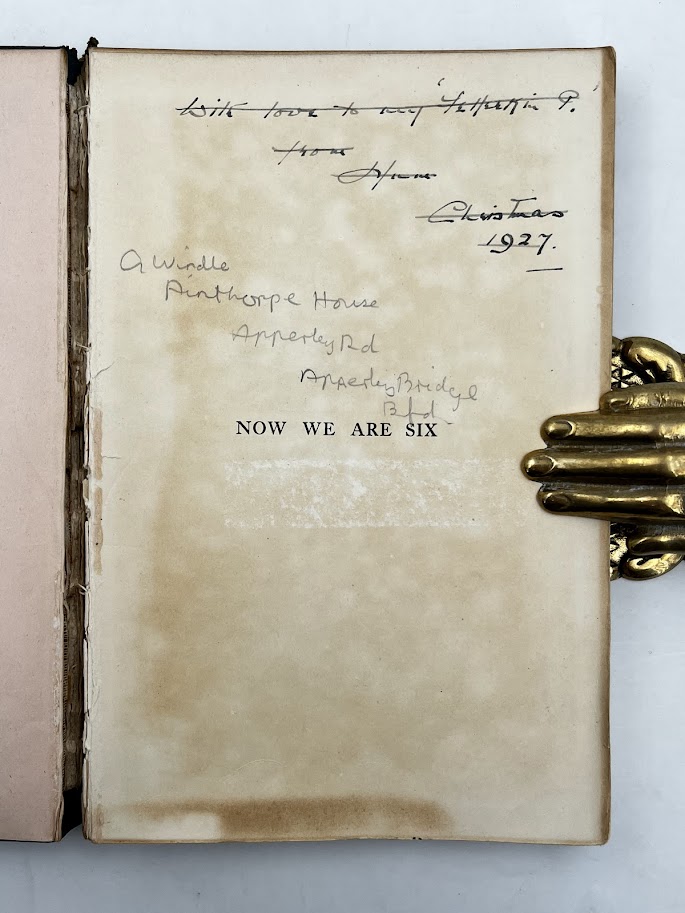 With love to my
from
Christmas
1927.
A Windle
Ainthorpe House
Apperley Rd
Apperley Bridge
Bfd.
NOW WE ARE SIX